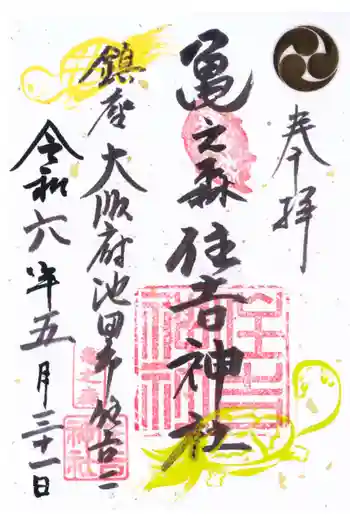 奉拝
亀之森住吉神社
鎮座 大阪府池田市住吉二
令和六年五月三十一日
住吉神社
亀之森
神社